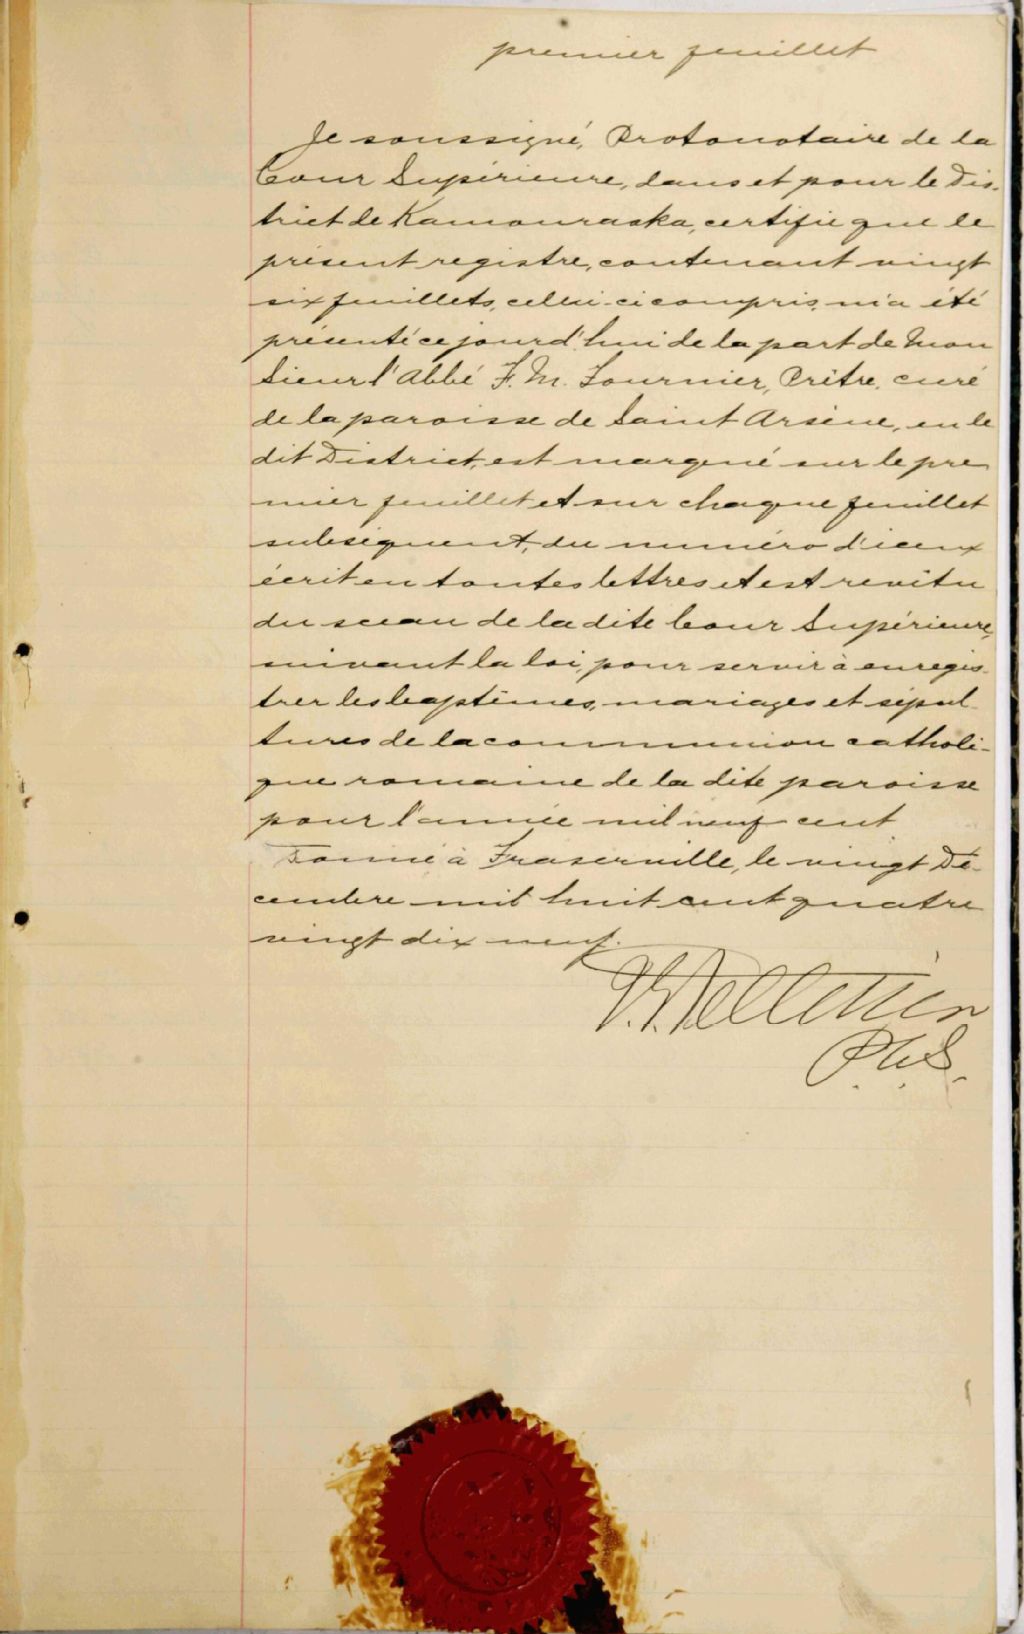 premier feuillet
Je soussigné, Protonotaire de la
Cour Supérieure, dans et pour le Dis-
trict de Kamouraska, certifie que le
présent registre, contenant vingt
six feuillets, celui-ci compris, m'a été
présenté ce jourd'hui de la part de Mon
sieur l'Abbé F. M. Fournier, Prêtre, curé
de la paroisse de Saint Arsène, en le
dit District, est marginé sur le pre
mier feuillet et sur chaque feuillet
subséquent, du numéro d'iceux
écrit en toutes lettres et est revêtu
du sceau de la dite Cour Supérieure,
suivant la loi, pour servir à enregis-
trer les baptêmes, mariages et sépul-
tures de la communion catholi-
que romaine de la dite paroisse
pour l'année mil neuf cent
Donné à Fraserville, le vingt Dé-
cembre mil huit cent quatre
vingt dix neuf.
Pelletier
P.C.S.